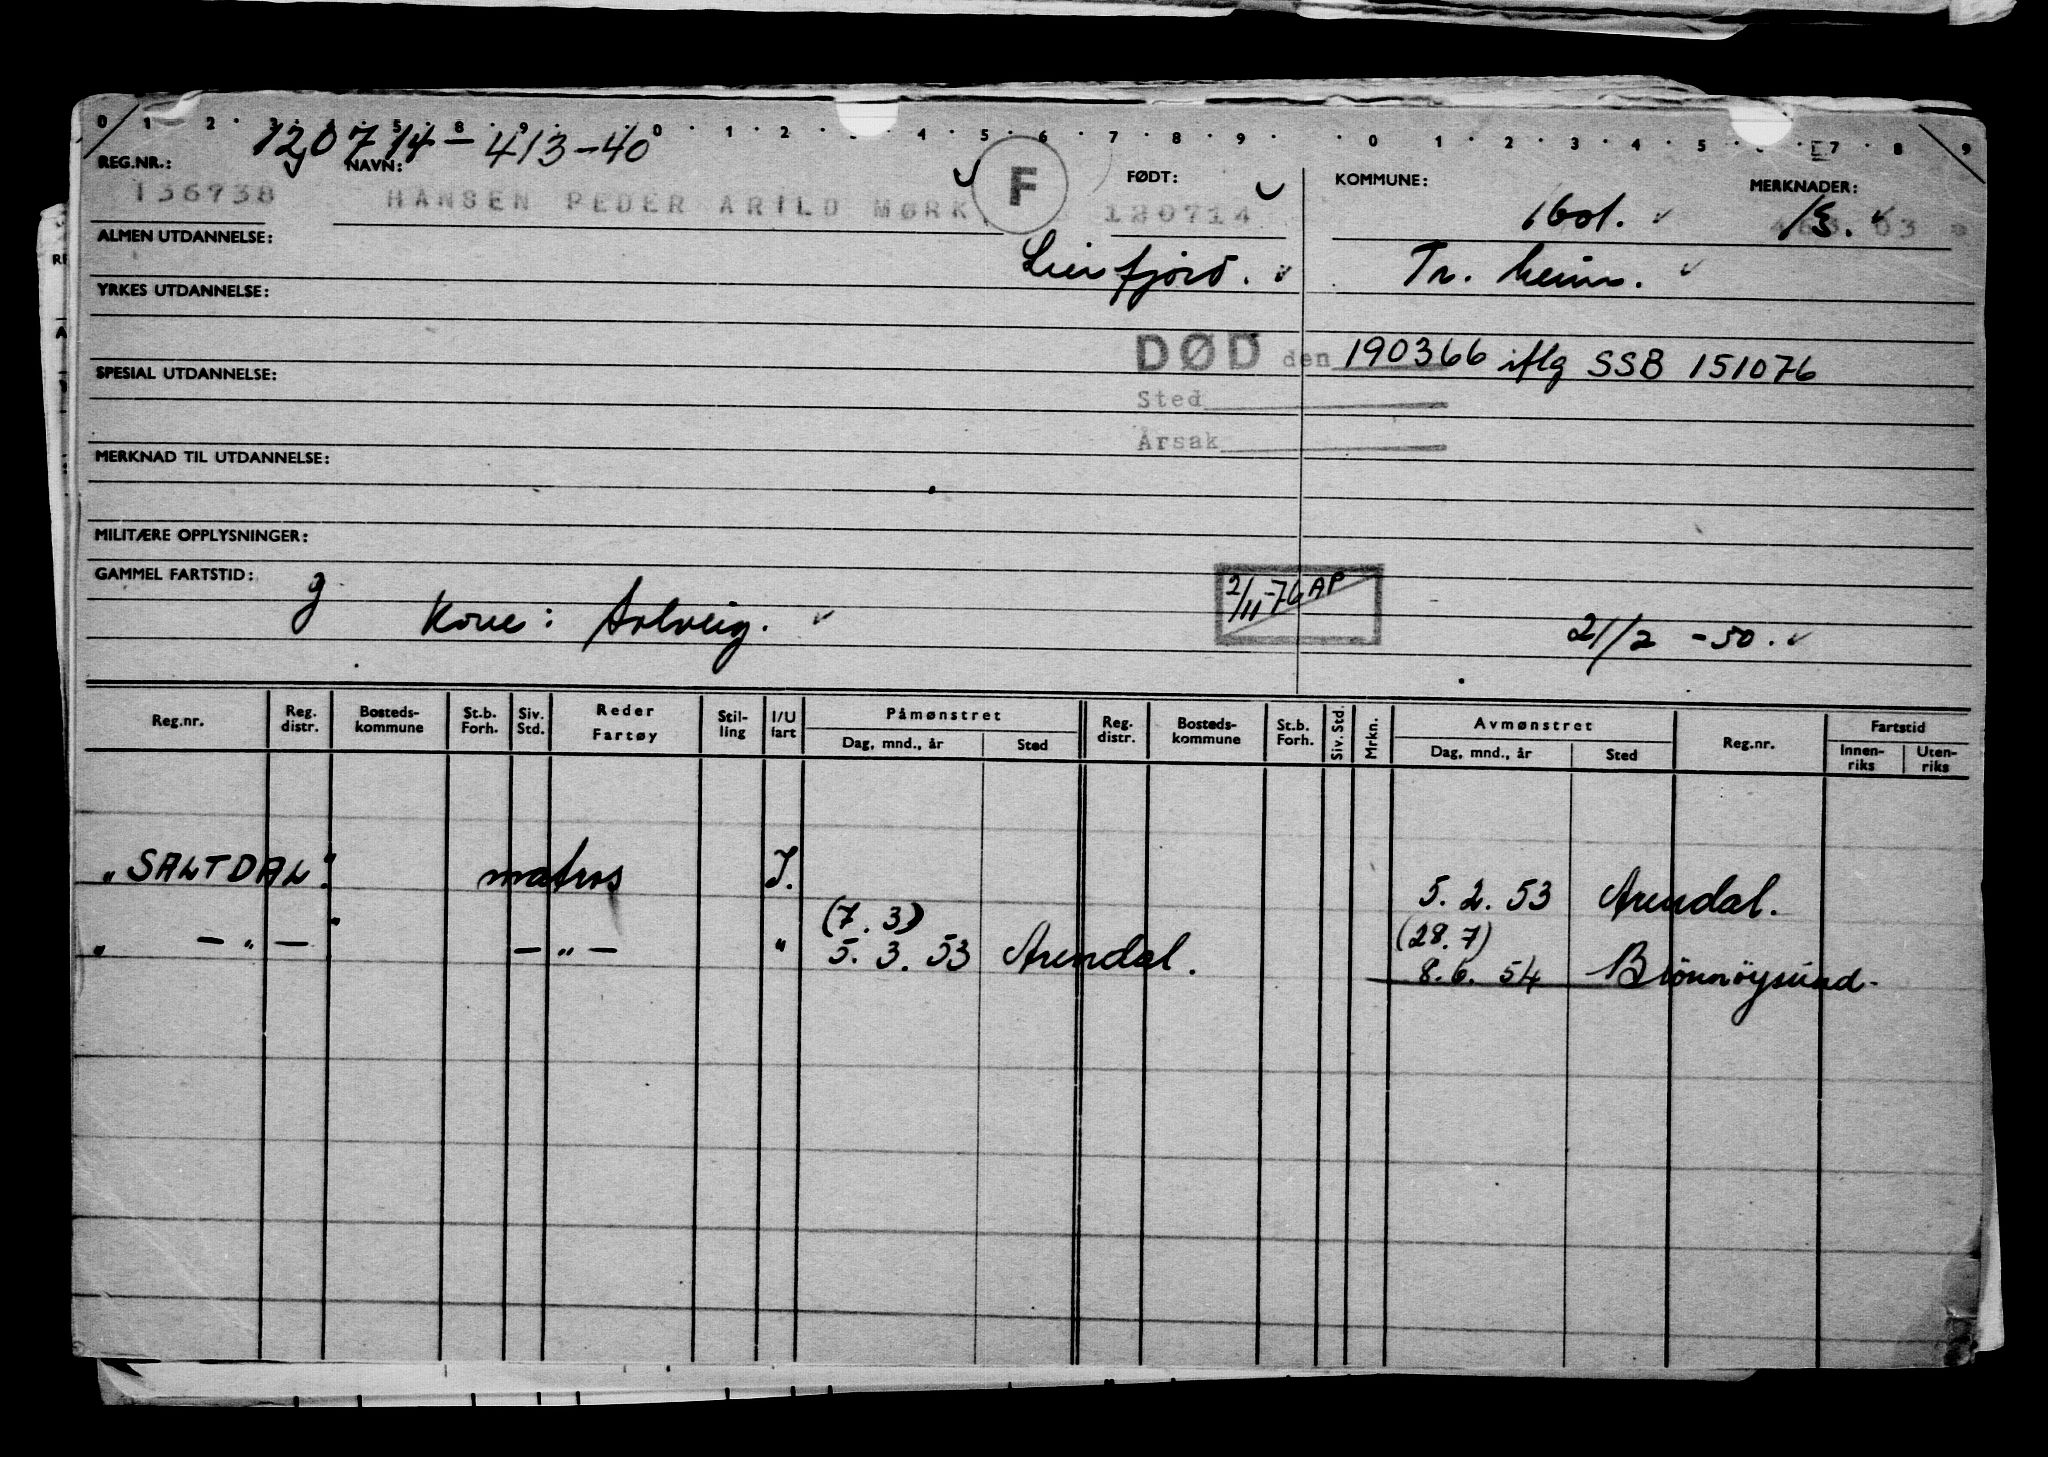 0 1 2 3 5 8 9 0 1 2 4 5 6 7 8 9 0 1 2 3 4 5 7 8 9
120714-413-40
REG.NR.: NAVN: FØDT: KOMMUNE: MERKNADER:
136938 HANSEN PEDER ARILD MØRK F 120714 1601. 03
ALMEN UTDANNELSE: Leirfjord. Tr. heim.
YRKES UTDANNELSE:
DØD den 190366 iflg SSB 151076
SPESIAL UTDANNELSE:
Sted
Årsak
MERKNAD TIL UTDANNELSE:
MILITÆRE OPPLYSNINGER:
GAMMEL FARTSTID: g
Kone: Solveig. 2/11-76 AP 21/2 -50.
Reg.nr. Reg. distr. Bosteds-kommune St.b. Forh. Siv. Std. Reder Fartøy Stil-ling I/U fart Påmønstret Dag, mnd., år Sted Reg. distr. Bosteds-kommune St.b. Forh. Siv. Std. Mrkn. Avmønstret Dag, mnd., år Sted Reg.nr. Fartstid Innen-riks Uten-riks
"SALTDAL". matros I. 5.2.53 Arendal.
(7.3) (28.7)
" — " — " — " — " 5.3.53 Arendal. 8.6.54 Brönnöysund.